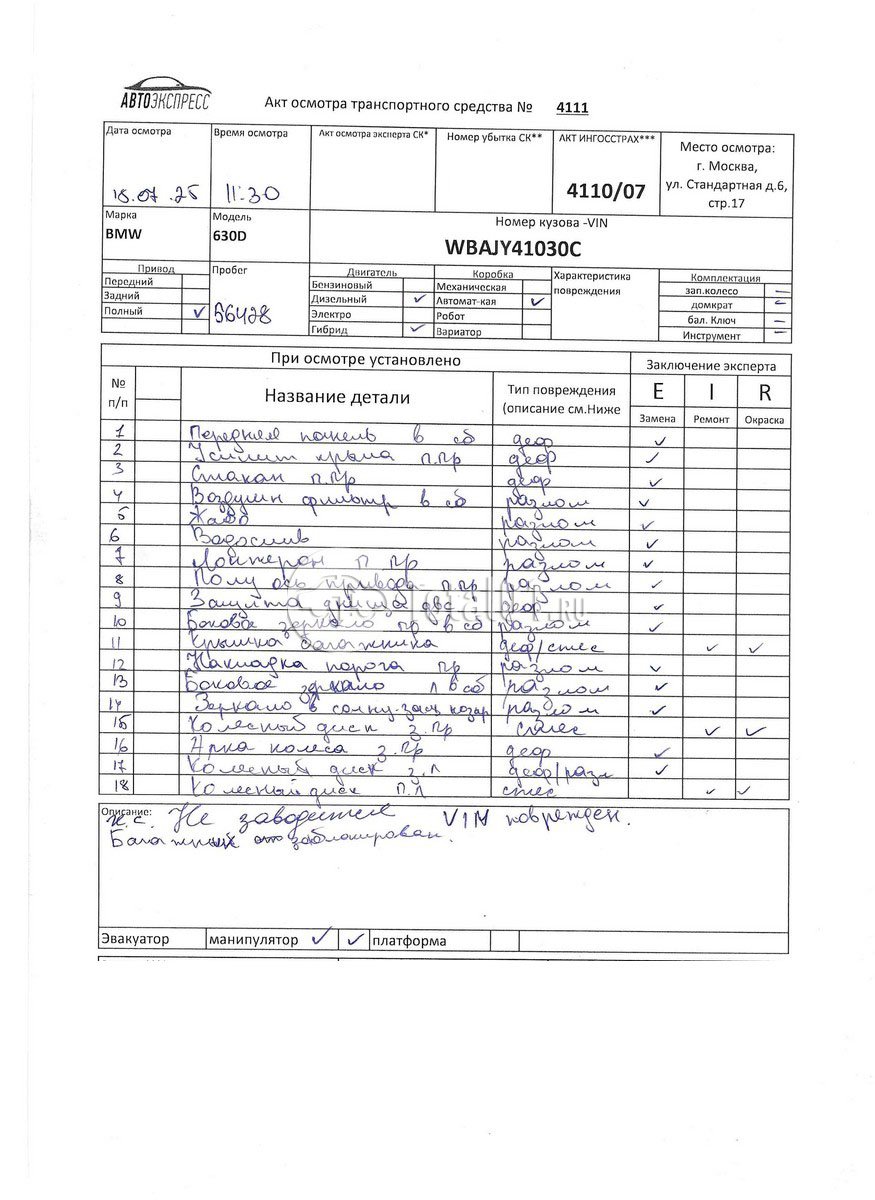 АВТОЭКСПРЕСС
Акт осмотра транспортного средства № 4111
Дата осмотра Время осмотра Акт осмотра эксперта СК* Номер убытка СК** АКТ ИНГОССТРАХ*** Место осмотра:
г. Москва,
18.07.25 11:30 4110/07 ул. Стандартная д.6,
стр.17
Марка Модель Номер кузова -VIN
BMW 630D WBAJY41030C
Привод Пробег Двигатель Коробка Характеристика Комплектация
Передний Бензиновый Механическая повреждения зап.колесо —
Задний Дизельный ✓ Автомат-кая ✓ домкрат —
Полный ✓ 56428 Электро Робот бал. Ключ —
Гибрид ✓ Вариатор Инструмент —
При осмотре установлено Заключение эксперта
№ п/п Название детали Тип повреждения (описание см.Ниже E I R
Замена Ремонт Окраска
1 Передняя панель в сб деф ✓
2 Усилит крыла п.пр деф ✓
3 Стакан п.пр деф ✓
4 Воздушн фильтр в сб разлом ✓
5 Жабо разлом ✓
6 Водослив разлом ✓
7 Лонжерон п пр разлом ✓
8 Полу ось привода п.пр разлом ✓
9 Защита днища двс деф ✓
10 Боковое зеркало пр в сб разлом ✓
11 Крышка багажника деф/спес ✓ ✓
12 Накладка порога пр разлом ✓
13 Боковое зеркало л в сб разлом ✓
14 Зеркало в солнц-защ козыр разлом ✓
15 Колесный диск з.пр спес ✓ ✓
16 Арка колеса з.пр деф ✓
17 Колесный диск з.л деф/разл ✓
18 Колесный диск п.л спес ✓ ✓
Описание:
к.с. Не заводится VIN поврежден.
Багажник заблокирован.
Эвакуатор манипулятор ✓ ✓ платформа